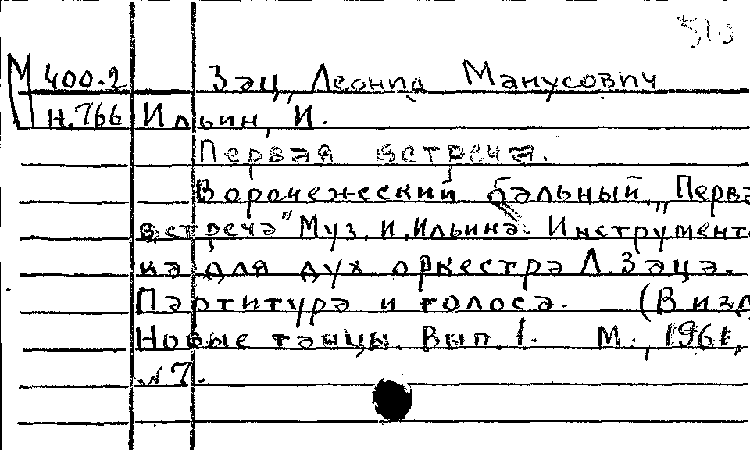 510
М 400.2 Зац, Леонид Манусович
Н.766 Ильин, И.
Первая встреча.
Воронежский бальный. „Перва
встреча" Муз. И. Ильина. Инструмент
ка для дух. оркестра Л. Заца.
Партитура и голоса. (В изд
Новые танцы. Вып. 1. М., 1961,
№7.